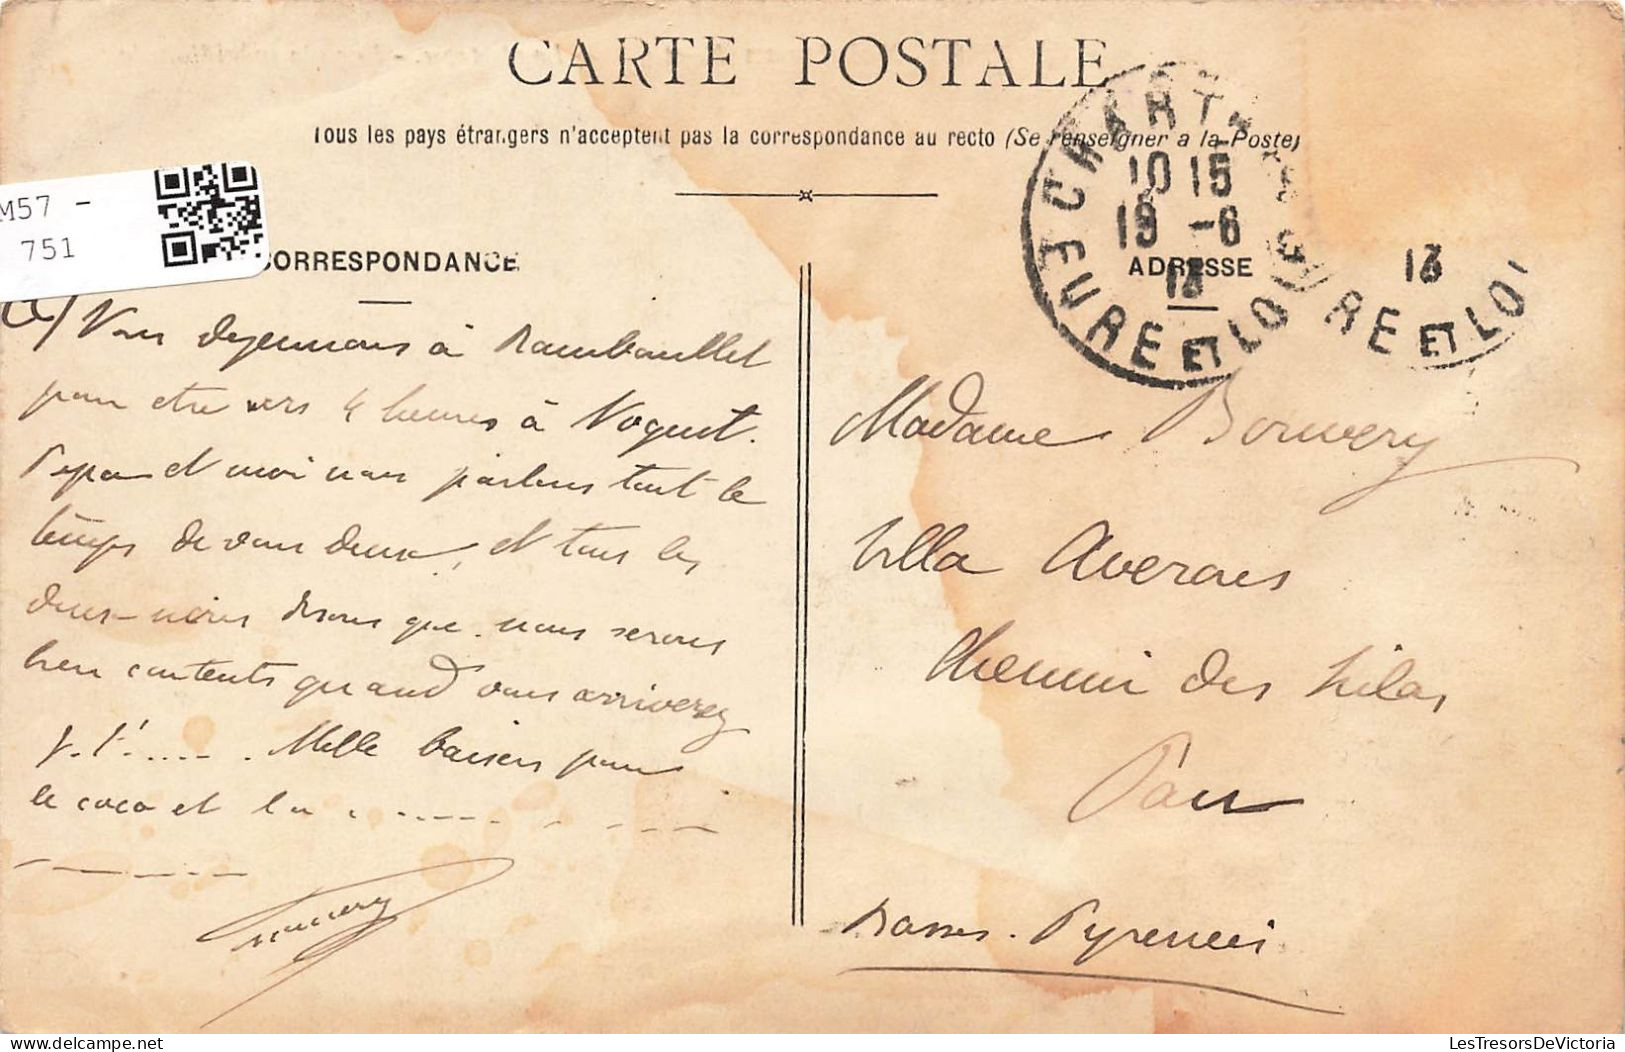 CARTE POSTALE
Tous les pays étrangers n'acceptent pas la correspondance au recto (Se renseigner a la Poste)
M57 -
751
CORRESPONDANCE
ADRESSE
CHARTRES
EURE ET LOIR
10 15
19 -6
13
13
RE ET LOI
Nous dejeunons à Rambouillet
pour etre vers 4 heures à Noguet.
Papa et moi nous parlons tout le
temps de vous deux, et tous les
deux nous disons que nous serons
bien contents quand vous arriverez
p. t'..... Mille baisers pour
le coco et la . . . . . . . .
Madame Bouvery
Villa Averoes
Chemin des Lilas
Pau
Basses-Pyrenées
LesTresorsDeVictoria - delcampe.net